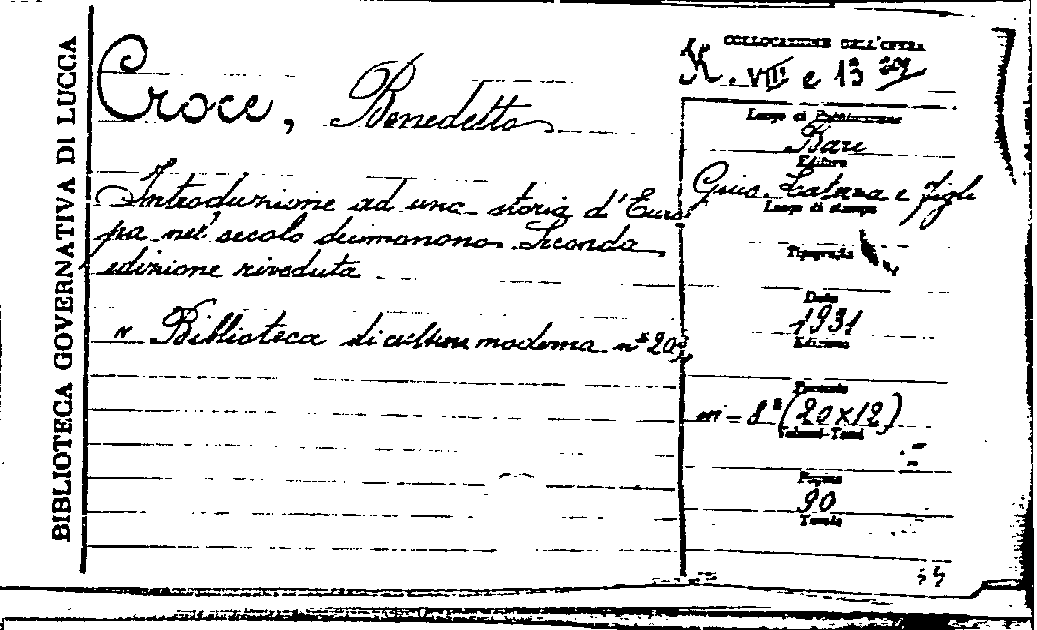 BIBLIOTECA GOVERNATIVA DI LUCCA
Croce, Benedetto
Introduzione ad una storia d'Euro
pa nel secolo decimonono. Seconda
edizione riveduta
Biblioteca di cultura moderna n°
COLLOCAZIONE DELL'OPERA
VIII e 13
Luogo di Pubblicazione
Bari
Editore
Gius. Laterza e figli
Luogo di stampa
Tipografia
Data
1931
Edizione
Formato
in - 8° (20x12)
Volumi-Tomi
Pagine
90
Tavole